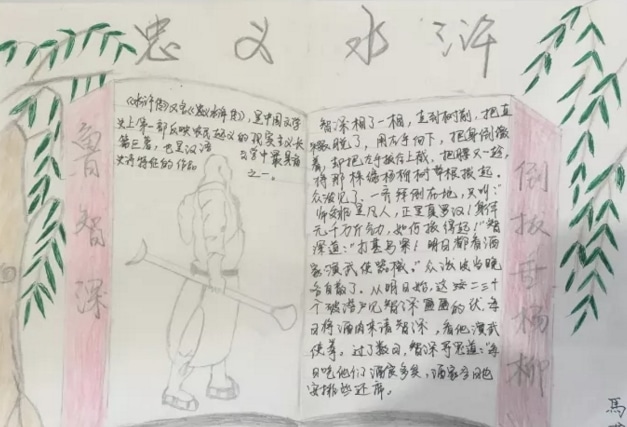 忠义水浒
鲁智深
《水浒传》又名《忠义水浒传》，是中国文学
史上第一部反映农民起义的现实主义长
篇巨著，也是汉语文学中最具有
史诗特征的作品之一。
智深相了一相，走到树前，把直
裰脱了，用右手向下，把身倒缴
着，却把左手扳住上截，把腰只一趁，
将那株绿杨柳树带根拔起。
众泼见了，一齐拜倒在地，只叫：“
师父非是凡人，正是真罗汉！身体
无千万斤气力，如何拔得起！”智
深道：“打甚鸟紧！明日都看洒
家演武使器械。”众泼皮当晚
各自散了。从明日始，这
个破落户见智深匾匾的伏，每
日将酒肉来请智深，看他演武
使拳。过了数日，智深寻思道：“每
日吃他们酒食多矣，洒家今日也
安排些还席。
倒拔垂杨柳
馬